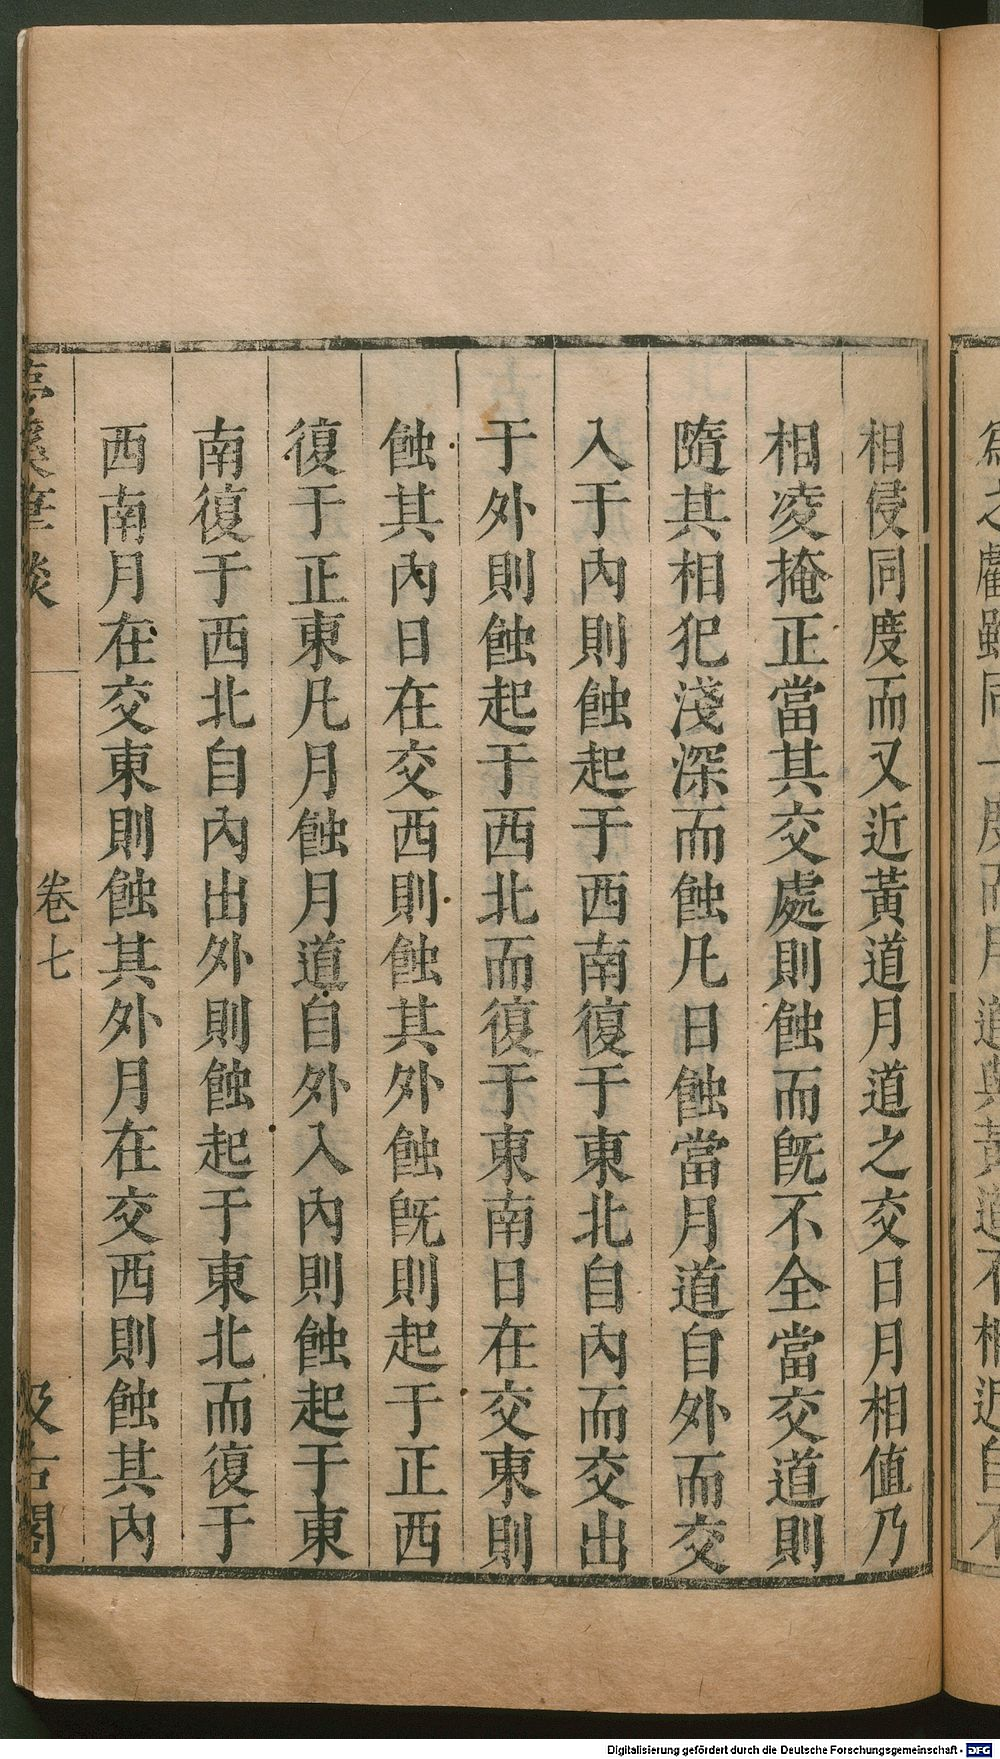 為之虧雖同一度而月道與黃道不相近自不
相侵同度而又近黃道月道之交日月相值乃
相凌掩正當其交處則蝕而旣不全當交道則
隨其相犯淺深而蝕凡日蝕當月道自外而交
入于內則蝕起于西南復于東北自內而交出
于外則蝕起于西北而復于東南日在交東則
蝕其內日在交西則蝕其外蝕旣則起于正西
復于正東凡月蝕月道自外入內則蝕起于東
南復于西北自內出外則蝕起于東北而復于
西南月在交東則蝕其外月在交西則蝕其內
筆談 卷七 汲古閣
Digitalisierung gefördert durch die Deutsche Forschungsgemeinschaft - DFG